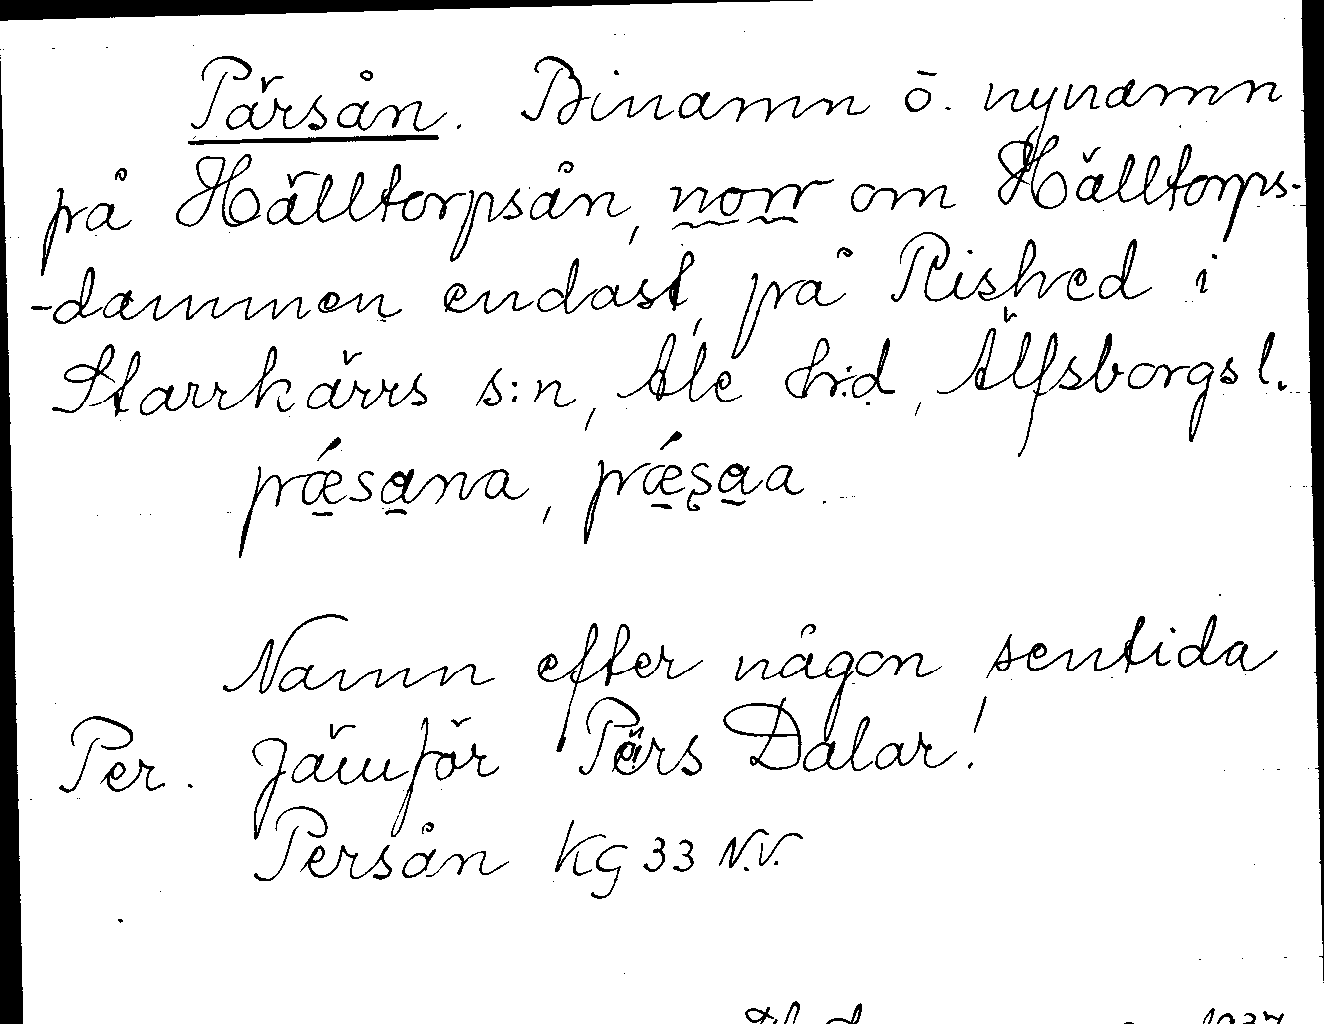 Pärsån. Binamn o. nynamn
på Hälltorpsån, norr om Hälltorps-
-dammen endast, på Rished i
Starrkärrs s:n, Ale hr:d, Älfsborgs l.
pǽsana, pǽsaa.
Namn efter någon sentida
Per. Jämför Pärs Dalar!
Persån KG 33 N.V.
1937